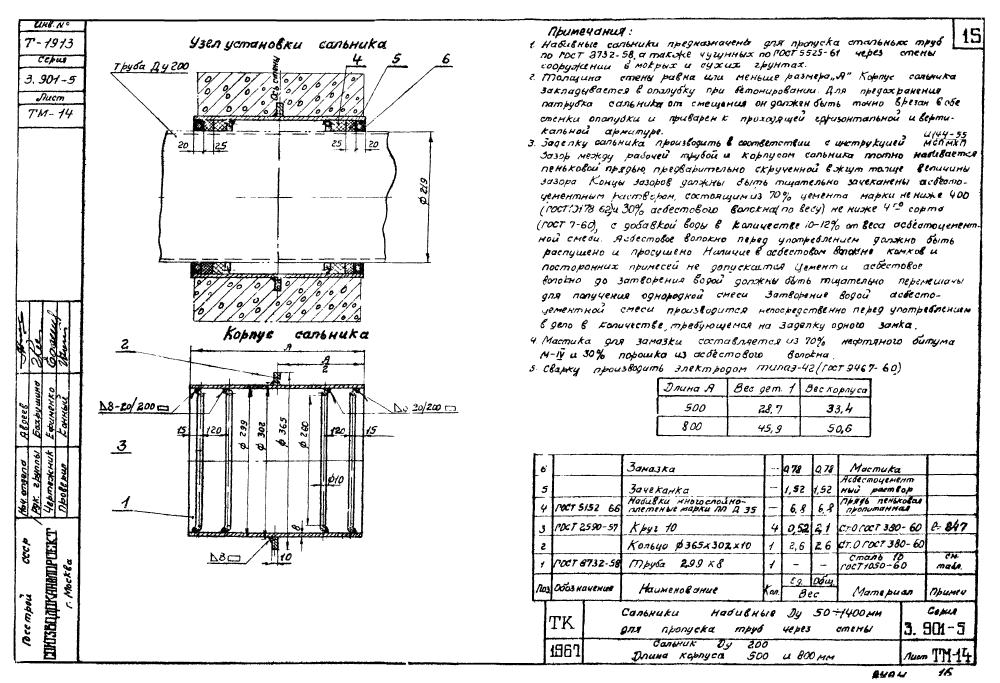 Инв. №
Т-1913
Серия
3.901-5
Лист
ТМ-14
Узел установки сальника
Труба Ду 200
Ось стены
4
5
6
20
25
25
20
Ф 219
Корпус сальника
A
A
2
2
Δ8-20/200
Δ8-20/200
15
120
Ф 299
Ф 302
Ф 365
Ф 260
120
15
3
Ф10
1
8
Δ8
10
15
Примечания:
1. Набивные сальники предназначены для пропуска стальных труб
по ГОСТ 8732-58, а также чугунных по ГОСТ 5525-61 через стены
сооружений в мокрых и сухих грунтах.
2. Толщина стены равна или меньше размера "А" Корпус сальника
закладывается в опалубку при бетонировании. Для предохранения
патрубка сальника от смещения он должен быть точно врезан в обе
стенки опалубки и приварен к проходящей горизонтальной и верти-
кальной арматуре.
3. Заделку сальника производить в соответствии с инструкцией И144-55 МСПМХП
Зазор между рабочей трубой и корпусом сальника плотно набивается
пеньковой прядью, предварительно скрученной в жгут толще величины
зазора Концы зазоров должны быть тщательно зачеканены асбесто-
цементным раствором, состоящим из 70% цемента марки не ниже 400
(ГОСТ 10178-62) и 30% асбестового волокна (по весу) не ниже 4го сорта
(ГОСТ 7-60), с добавкой воды в количестве 10-12% от веса асбестоцемент-
ной смеси. Асбестовое волокно перед употреблением должно быть
распушено и просушено Наличие в асбестовом волокне комков и
посторонних примесей не допускается Цемент и асбестовое
волокно до затворения водой должны быть тщательно перемешаны
для получения однородной смеси Затворение водой асбесто-
цементной смеси производится непосредственно перед употреблением
в дело в количестве, требующемся на заделку одного замка.
4. Мастика для замазки составляется из 70% нефтяного битума
М-IV и 30% порошка из асбестового волокна.
5. Сварку производить электродом типа Э-42 (ГОСТ 9467-60)
Длина А Вес дет. 1 Вес корпуса
500 28,7 33,4
800 45,9 50,6
6 Замазка - 0,78 0,78 Мастика
5 Зачеканка - 1,52 1,52 Асбестоцементный раствор
4 ГОСТ 5152-66 Набивки многослойно-плетеные марки ПП Д 35 - 6,8 6,8 Прядь пеньковая пропитанная
3 ГОСТ 2590-57 Круг 10 4 0,52 2,1 Ст.0 ГОСТ 380-60 ℓ=847
2 Кольцо Ф365х302х10 1 2,6 2,6 Ст.0 ГОСТ 380-60
1 ГОСТ 8732-58 Труба 299х8 1 - - Сталь 10 ГОСТ 1050-60 см. табл.
Поз. Обозначение Наименование Кол. Ед. Общ. Вес Материал Примеч
ТК
1967
Сальники набивные Ду 50÷1400мм
для пропуска труб через стены
Сальник Ду 200
Длина корпуса 500 и 800 мм
Серия
3.901-5
Лист ТМ-14
16
Нач. отдела Авдеев
Рук. группы Бахрушина
Чертежник Ефименко
Проверил
Госстрой СССР
СОЮЗВОДОКАНАЛПРОЕКТ
г. Москва